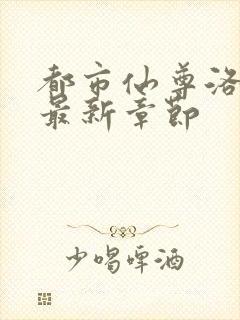 都市仙尊洛
最新章节
少喝啤酒